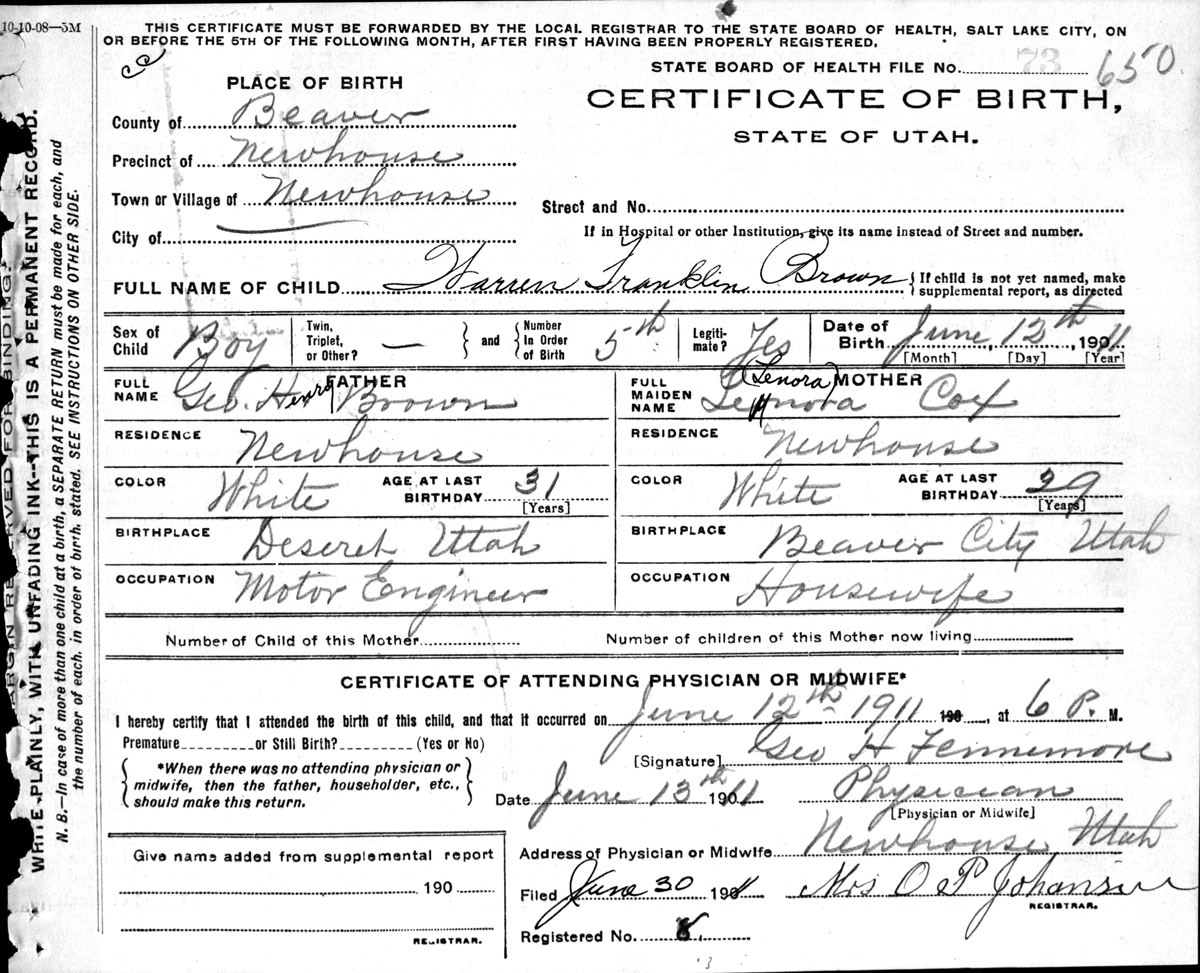 10-10-08—5M
THIS CERTIFICATE MUST BE FORWARDED BY THE LOCAL REGISTRAR TO THE STATE BOARD OF HEALTH, SALT LAKE CITY, ON
OR BEFORE THE 5TH OF THE FOLLOWING MONTH, AFTER FIRST HAVING BEEN PROPERLY REGISTERED.
STATE BOARD OF HEALTH FILE No. 73 650
PLACE OF BIRTH
CERTIFICATE OF BIRTH,
STATE OF UTAH.
County of Beaver
Precinct of Newhouse
Town or Village of Newhouse
Street and No.
City of
If in Hospital or other Institution, give its name instead of Street and number.
FULL NAME OF CHILD Warren Franklin Brown { If child is not yet named, make supplemental report, as directed
Sex of Child Boy Twin, Triplet, or Other? — } and { Number In Order of Birth 5th Legiti-mate? Yes Date of Birth June, 12th, 1911
[Month] [Day] [Year]
FATHER
FULL NAME Geo. Henry Brown
RESIDENCE Newhouse
COLOR White AGE AT LAST BIRTHDAY 31 [Years]
BIRTHPLACE Deseret Utah
OCCUPATION Motor Engineer
MOTHER
FULL MAIDEN NAME Lennora (Lenora) Cox
RESIDENCE Newhouse
COLOR White AGE AT LAST BIRTHDAY 29 [Years]
BIRTHPLACE Beaver City Utah
OCCUPATION Housewife
Number of Child of this Mother Number of children of this Mother now living
CERTIFICATE OF ATTENDING PHYSICIAN OR MIDWIFE*
I hereby certify that I attended the birth of this child, and that it occurred on June 12th 1911 190 , at 6 P. M.
Premature or Still Birth? (Yes or No)
[Signature] Geo H Fennemore
{ *When there was no attending physician or midwife, then the father, householder, etc., should make this return. }
Date June 13th 1911 Physician
[Physician or Midwife]
Address of Physician or Midwife Newhouse Utah
Give name added from supplemental report
190
REGISTRAR.
Filed June 30 1911 Mrs O P Johansen
REGISTRAR.
Registered No. 8.
MARGIN RESERVED FOR BINDING.
WRITE PLAINLY, WITH UNFADING INK--THIS IS A PERMANENT RECORD.
N. B.—In case of more than one child at a birth, a SEPARATE RETURN must be made for each, and
the number of each, in order of birth, stated. SEE INSTRUCTIONS ON OTHER SIDE.